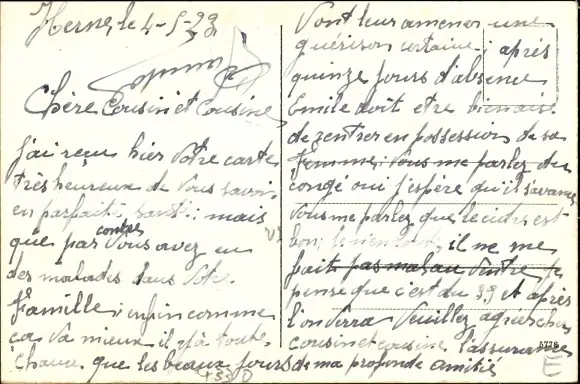 Herne, le 4-5-23
Chère Cousin et Cousine
J'ai reçu hier votre carte
très heureux de vous savoir
en parfaite santé; mais
que par contre vous avez eu
des malades dans votre
Famille; enfin comme
ça va mieux il y a toute
chance que les beaux jours
vont leur amener une
guérison certaine; après
quinze jours d'absence
Emile doit etre bien aise
de rentrer en possession de sa
Femme; vous me parlez du
congé oui j'espère qu'il s'avance
Vous me parlez que le cidre est
bon; le mien il ne me
fait pas mal au ventre je
pense que c'est du 39 et après
l'on verra Veuillez agréer cher
cousin et cousine l'assurance
de ma profonde amitié
5726
E